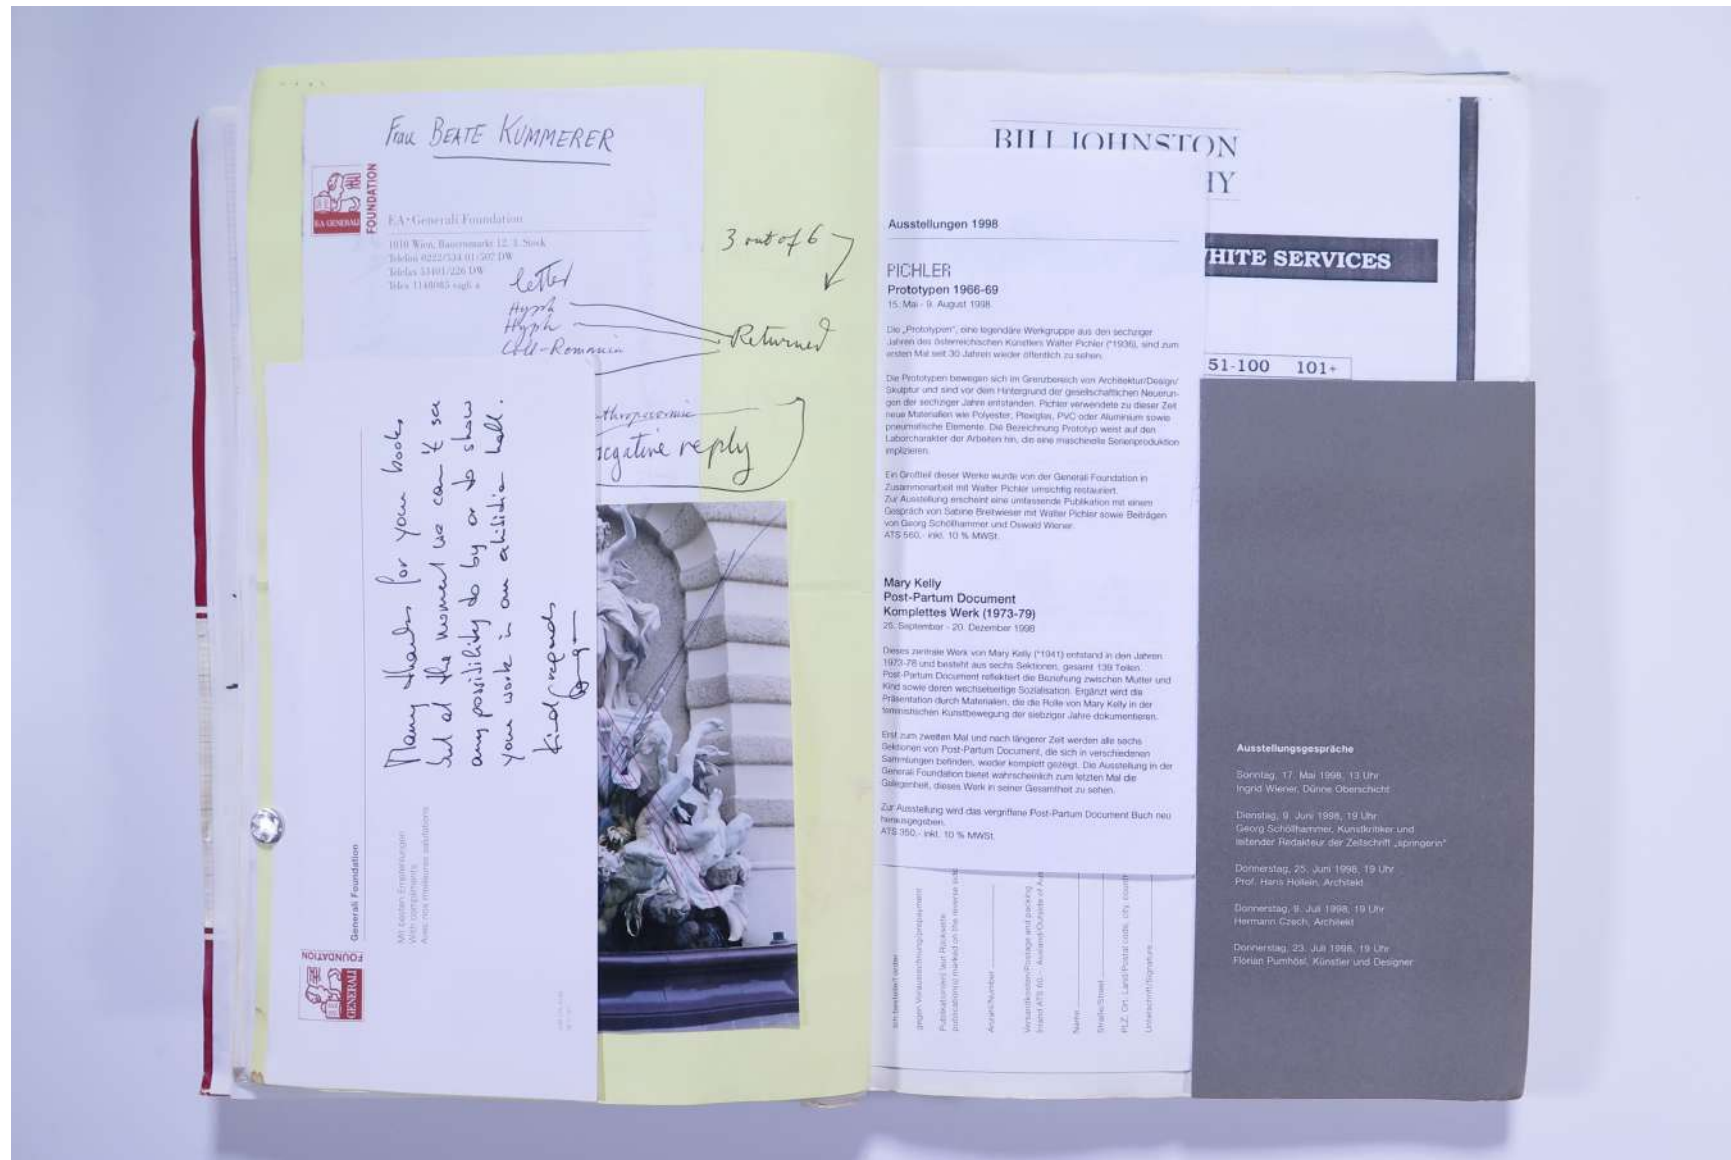 Frau BEATE KUMMERER
EA GENERALI
FOUNDATION
EA-Generali Foundation
1010 Wien, Bauernmarkt 12, 1. Stock
Telefon 0222/534 01/507 DW
Telefax 53401/226 DW
letter
Hyph
Hyph
Coll-Romania
3 out of 6
Returned
negative reply
Many thanks for your books
but at the moment we can't see
any possibility to by or to show
your work in our exhibition hall.
Kind regards
Generali Foundation
Mit besten Empfehlungen
With compliments
Avec nos meilleures salutations
GENERALI
FOUNDATION
BILL JOHNSTON
HY
HITE SERVICES
51-100 101+
Ausstellungen 1998
PICHLER
Prototypen 1966-69
15. Mai - 9. August 1998
Die „Prototypen“, eine legendäre Werkgruppe aus den sechziger
Jahren des österreichischen Künstlers Walter Pichler (*1936), sind zum
ersten Mal seit 30 Jahren wieder öffentlich zu sehen.
Die Prototypen bewegen sich im Grenzbereich von Architektur/Design/
Skulptur und sind vor dem Hintergrund der gesellschaftlichen Neuerun-
gen der sechziger Jahre entstanden. Pichler verwendete zu dieser Zeit
neue Materialien wie Polyester, Plexiglas, PVC oder Aluminium sowie
pneumatische Elemente. Die Bezeichnung Prototyp weist auf den
Laborcharakter der Arbeiten hin, die eine maschinelle Serienproduktion
implizieren.
Ein Großteil dieser Werke wurde von der Generali Foundation in
Zusammenarbeit mit Walter Pichler umsichtig restauriert.
Zur Ausstellung erscheint eine umfassende Publikation mit einem
Gespräch von Sabine Breitwieser mit Walter Pichler sowie Beiträgen
von Georg Schöllhammer und Oswald Wiener.
ATS 560,- inkl. 10 % MWSt.
Mary Kelly
Post-Partum Document
Komplettes Werk (1973-79)
25. September - 20. Dezember 1998
Dieses zentrale Werk von Mary Kelly (*1941) entstand in den Jahren
1973-79 und besteht aus sechs Sektionen, gesamt 139 Teilen.
Post-Partum Document reflektiert die Beziehung zwischen Mutter und
Kind sowie deren wechselseitige Sozialisation. Ergänzt wird die
Präsentation durch Materialien, die die Rolle von Mary Kelly in der
feministischen Kunstbewegung der siebziger Jahre dokumentieren.
Erst zum zweiten Mal und nach längerer Zeit werden alle sechs
Sektionen von Post-Partum Document, die sich in verschiedenen
Sammlungen befinden, wieder komplett gezeigt. Die Ausstellung in der
Generali Foundation bietet wahrscheinlich zum letzten Mal die
Gelegenheit, dieses Werk in seiner Gesamtheit zu sehen.
Zur Ausstellung wird das vergriffene Post-Partum Document Buch neu
herausgegeben.
ATS 350,- inkl. 10 % MWSt.
Ich bestelle/I order
gegen Vorausrechnung/prepayment
Publikation(en) laut Rückseite
publication(s) marked on the reverse side
Anzahl/Number
Versandkosten/Postage and packing
Inland ATS 60,- Ausland/Outside of Aus
Name
Straße/Street
PLZ, Ort, Land/Postal code, city, country
Unterschrift/Signature
Ausstellungsgespräche
Sonntag, 17. Mai 1998, 13 Uhr
Ingrid Wiener, Dünne Oberschicht
Dienstag, 9. Juni 1998, 19 Uhr
Georg Schöllhammer, Kunstkritiker und
leitender Redakteur der Zeitschrift „springerin“
Donnerstag, 25. Juni 1998, 19 Uhr
Prof. Hans Hollein, Architekt
Donnerstag, 9. Juli 1998, 19 Uhr
Hermann Czech, Architekt
Donnerstag, 23. Juli 1998, 19 Uhr
Florian Pumhösl, Künstler und Designer